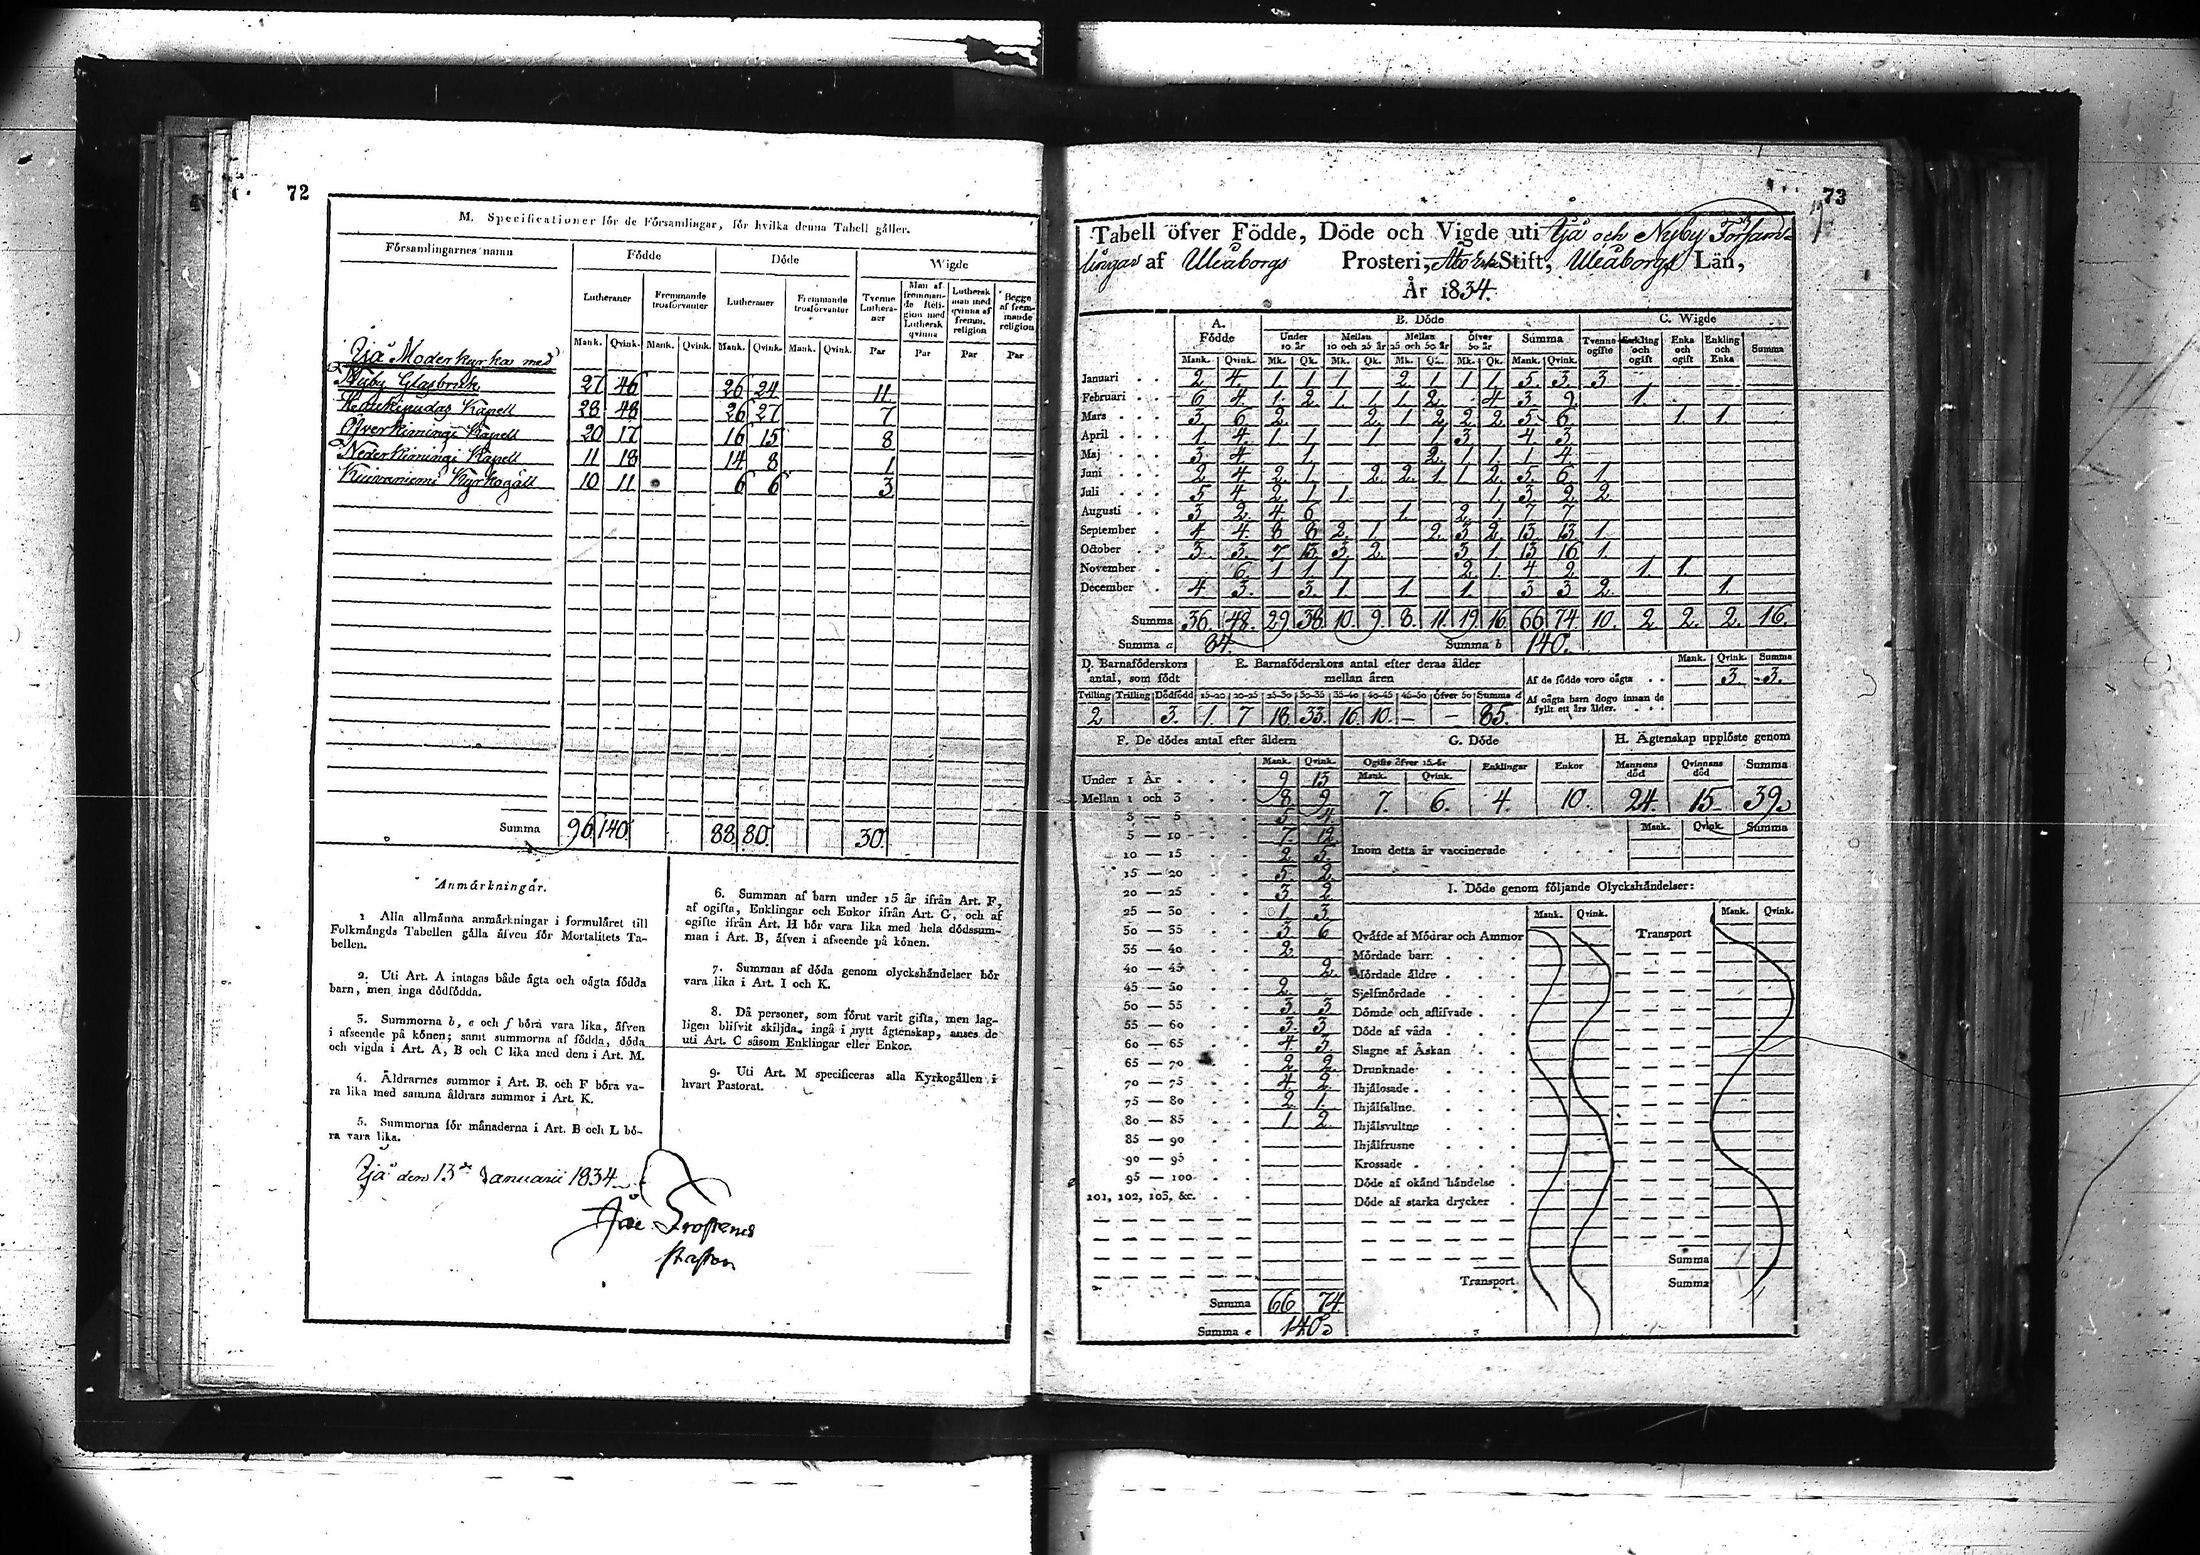 72
M. Specificationer för de Församlingar, för hvilka denna Tabell gäller.
Församlingarnes namn Födde Döde Wigde
Lutheraner Fremmande trosförvanter Lutheraner Fremmande trosförvanter Tvenne Lutheraner Man af fremmande Religion med Luthersk qvinna Luthersk man med qvinna af fremm. religion Begge af fremmande religion
Mank. Qvink. Mank. Qvink. Mank. Qvink. Mank. Qvink. Par Par Par Par
Ijå Moderkyrka med
Nyby Glasbruk 27 46 26 24 11
Haukipudas Kapell 28 48 26 27 7
Öfverkimingi Kapell 20 17 16 15 8
Nederkimingi Kapell 11 18 14 8 1
Kuivaniemi Kyrkogäll 10 11 6 6 3
Summa 96 140 88 80 30
Anmärkningar.
1 Alla allmänna anmärkningar i formuläret till
Folkmängds Tabellen gälla äfven för Mortalitets Ta-
bellen.
2. Uti Art. A intagas både ägta och oägta födda
barn, men inga dödfödda.
3. Summorna b, e och f böra vara lika, äfven
i afseende på könen; samt summorna af födda, döda
och vigda i Art. A, B och C lika med dem i Art. M.
4. Åldrarnes summor i Art. B. och F böra va-
ra lika med samma åldrars summor i Art. K.
5. Summorna för månaderna i Art. B och L bö-
ra vara lika.
6. Summan af barn under 15 år ifrån Art. F,
af ogifta, Enklingar och Enkor ifrån Art. G, och af
ogifte ifrån Art. H bör vara lika med hela dödssum-
man i Art. B, äfven i afseende på könen.
7. Summan af döda genom olyckshändelser bör
vara lika i Art. I och K.
8. Då personer, som förut varit gifta, men lag-
ligen blifvit skiljda, ingå i nytt ägtenskap, anses de
uti Art. C såsom Enklingar eller Enkor.
9. Uti Art. M specificeras alla Kyrkogällen i
hvart Pastorat.
Ijå den 13de Januarii 1834
73
Tabell öfver Födde, Döde och Vigde uti Ijå och Nyby Försam-
lingar af Uleåborgs Prosteri, Stift, Uleåborgs Län,
År 1834.
A. Födde B. Döde C. Wigde
Under 10 år Mellan 10 och 25 år Mellan 25 och 50 år Öfver 50 år Summa Tvenne ogifte Enkling och ogift Enka och ogift Enkling och Enka Summa
Mank. Qvink. Mk. Qk. Mk. Qk. Mk. Qk. Mk. Qk. Mank. Qvink.
Januari 2 4. 1. 1 1 2. 1 1 1. 5. 3. 3
Februari 6 4 1. 2 1. 1 1 2. 4 3 9. 1.
Mars 3 6 2. 2. 1 2 2 2 5 6. 1. 1.
April 1. 4. 1 1 1 1 3 4 3
Maj 3 4 1. 2. 1 1 1 4
Juni 2 4 2. 1. 2. 2. 1 1 2. 5 6 1.
Juli 5 4 2. 1 1. 1. 3 2 2
Augusti 3 2. 4 6 1. 2. 1. 7 7
September 4 4. 8 8 2. 1 2. 3 2. 13 13 1.
October 3 3. 7 13 3 2. 3 1. 13 16 1.
November 6 1 1. 1 2. 1. 4 2 1. 1.
December 4 3. 3. 1 1 1. 3 3 2. 1.
Summa 36. 48. 29 38 10. 9 8. 11. 19 16 66 74 10. 2 2. 2. 16.
Summa a 84. Summa b 140.
D. Barnaföderskors antal, som födt E. Barnaföderskors antal efter deras ålder mellan åren Mank. Qvink. Summa
Af de födde voro oägta 3 3.
Tvilling Trilling Dödfödd 15-20 20-25 25-30 30-35 35-40 40-45 45-50 öfver 50 Summa d
Af oägta barn dogo innan de fyllt ett års ålder.
2 3. 1. 7 18 33. 16. 10. — — 85.
F. De dödes antal efter åldern G. Döde H. Ägtenskap upplöste genom
Mank. Qvink. Ogifte öfver 15 år Mank. Qvink. Enklingar Enkor Mannens död Qvinnans död Summa
7. 6. 4. 10. 24. 15 39.
Under 1 År 9 13
Mellan 1 och 3 8 9
3 — 5 5 4
5 — 10 7. 12
10 — 15 2 5.
15 — 20 5. 2
20 — 25 3 2
25 — 30 1 3
30 — 35 3 6
35 — 40 2.
40 — 45 2.
45 — 50 2.
50 — 55 3. 3
55 — 60 3. 3
60 — 65 4. 3
65 — 70 2 2
70 — 75 4. 2.
75 — 80 2. 1.
80 — 85 1 2.
85 — 90
90 — 95
95 — 100
101, 102, 103, &c.
Summa 66 74
Summa e 140.
Mank. Qvink. Summa
Inom detta år vaccinerade
I. Döde genom följande Olyckshändelser:
Mank. Qvink. Mank. Qvink.
Qväfde af Mödrar och Ammor Transport
Mördade barn
Mördade äldre
Sjelfmördade
Dömde och aflifvade
Döde af våda
Slagne af Åskan
Drunknade
Ihjälosade
Ihjälfallne
Ihjälsvultne
Ihjälfrusne
Krossade
Döde af okänd händelse
Döde af starka drycker
Summa
Transport. Summa